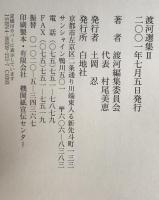 渡河選集Ⅱ
二〇〇一年七月五日発行
著者 渡河編集委員会
代表 村尾美恵
発行者 土岡忍
発行所 白地社
京都市左京区二条通り川端東入る新先斗町一三三
サンシャイン鴨川五〇一 〒六〇六―八三八三
電話 〇七五―七五一―七八七九
FAX 〇七五―七五一―七五一九
振替 〇一〇一〇―五―三四六七六
印刷製本・有限会社 機関紙宣伝センター